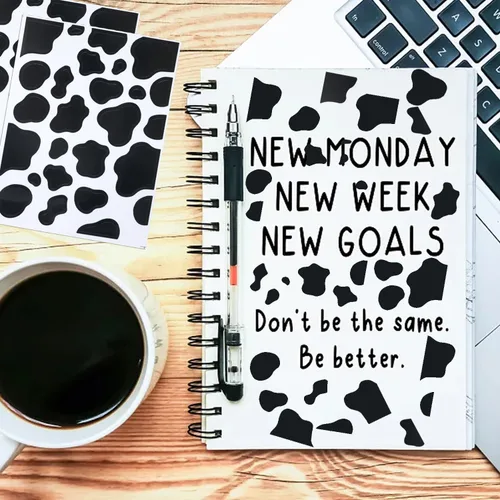 NEW MONDAY
NEW WEEK
NEW GOALS
Don't be the same.
Be better.
fn
control
option